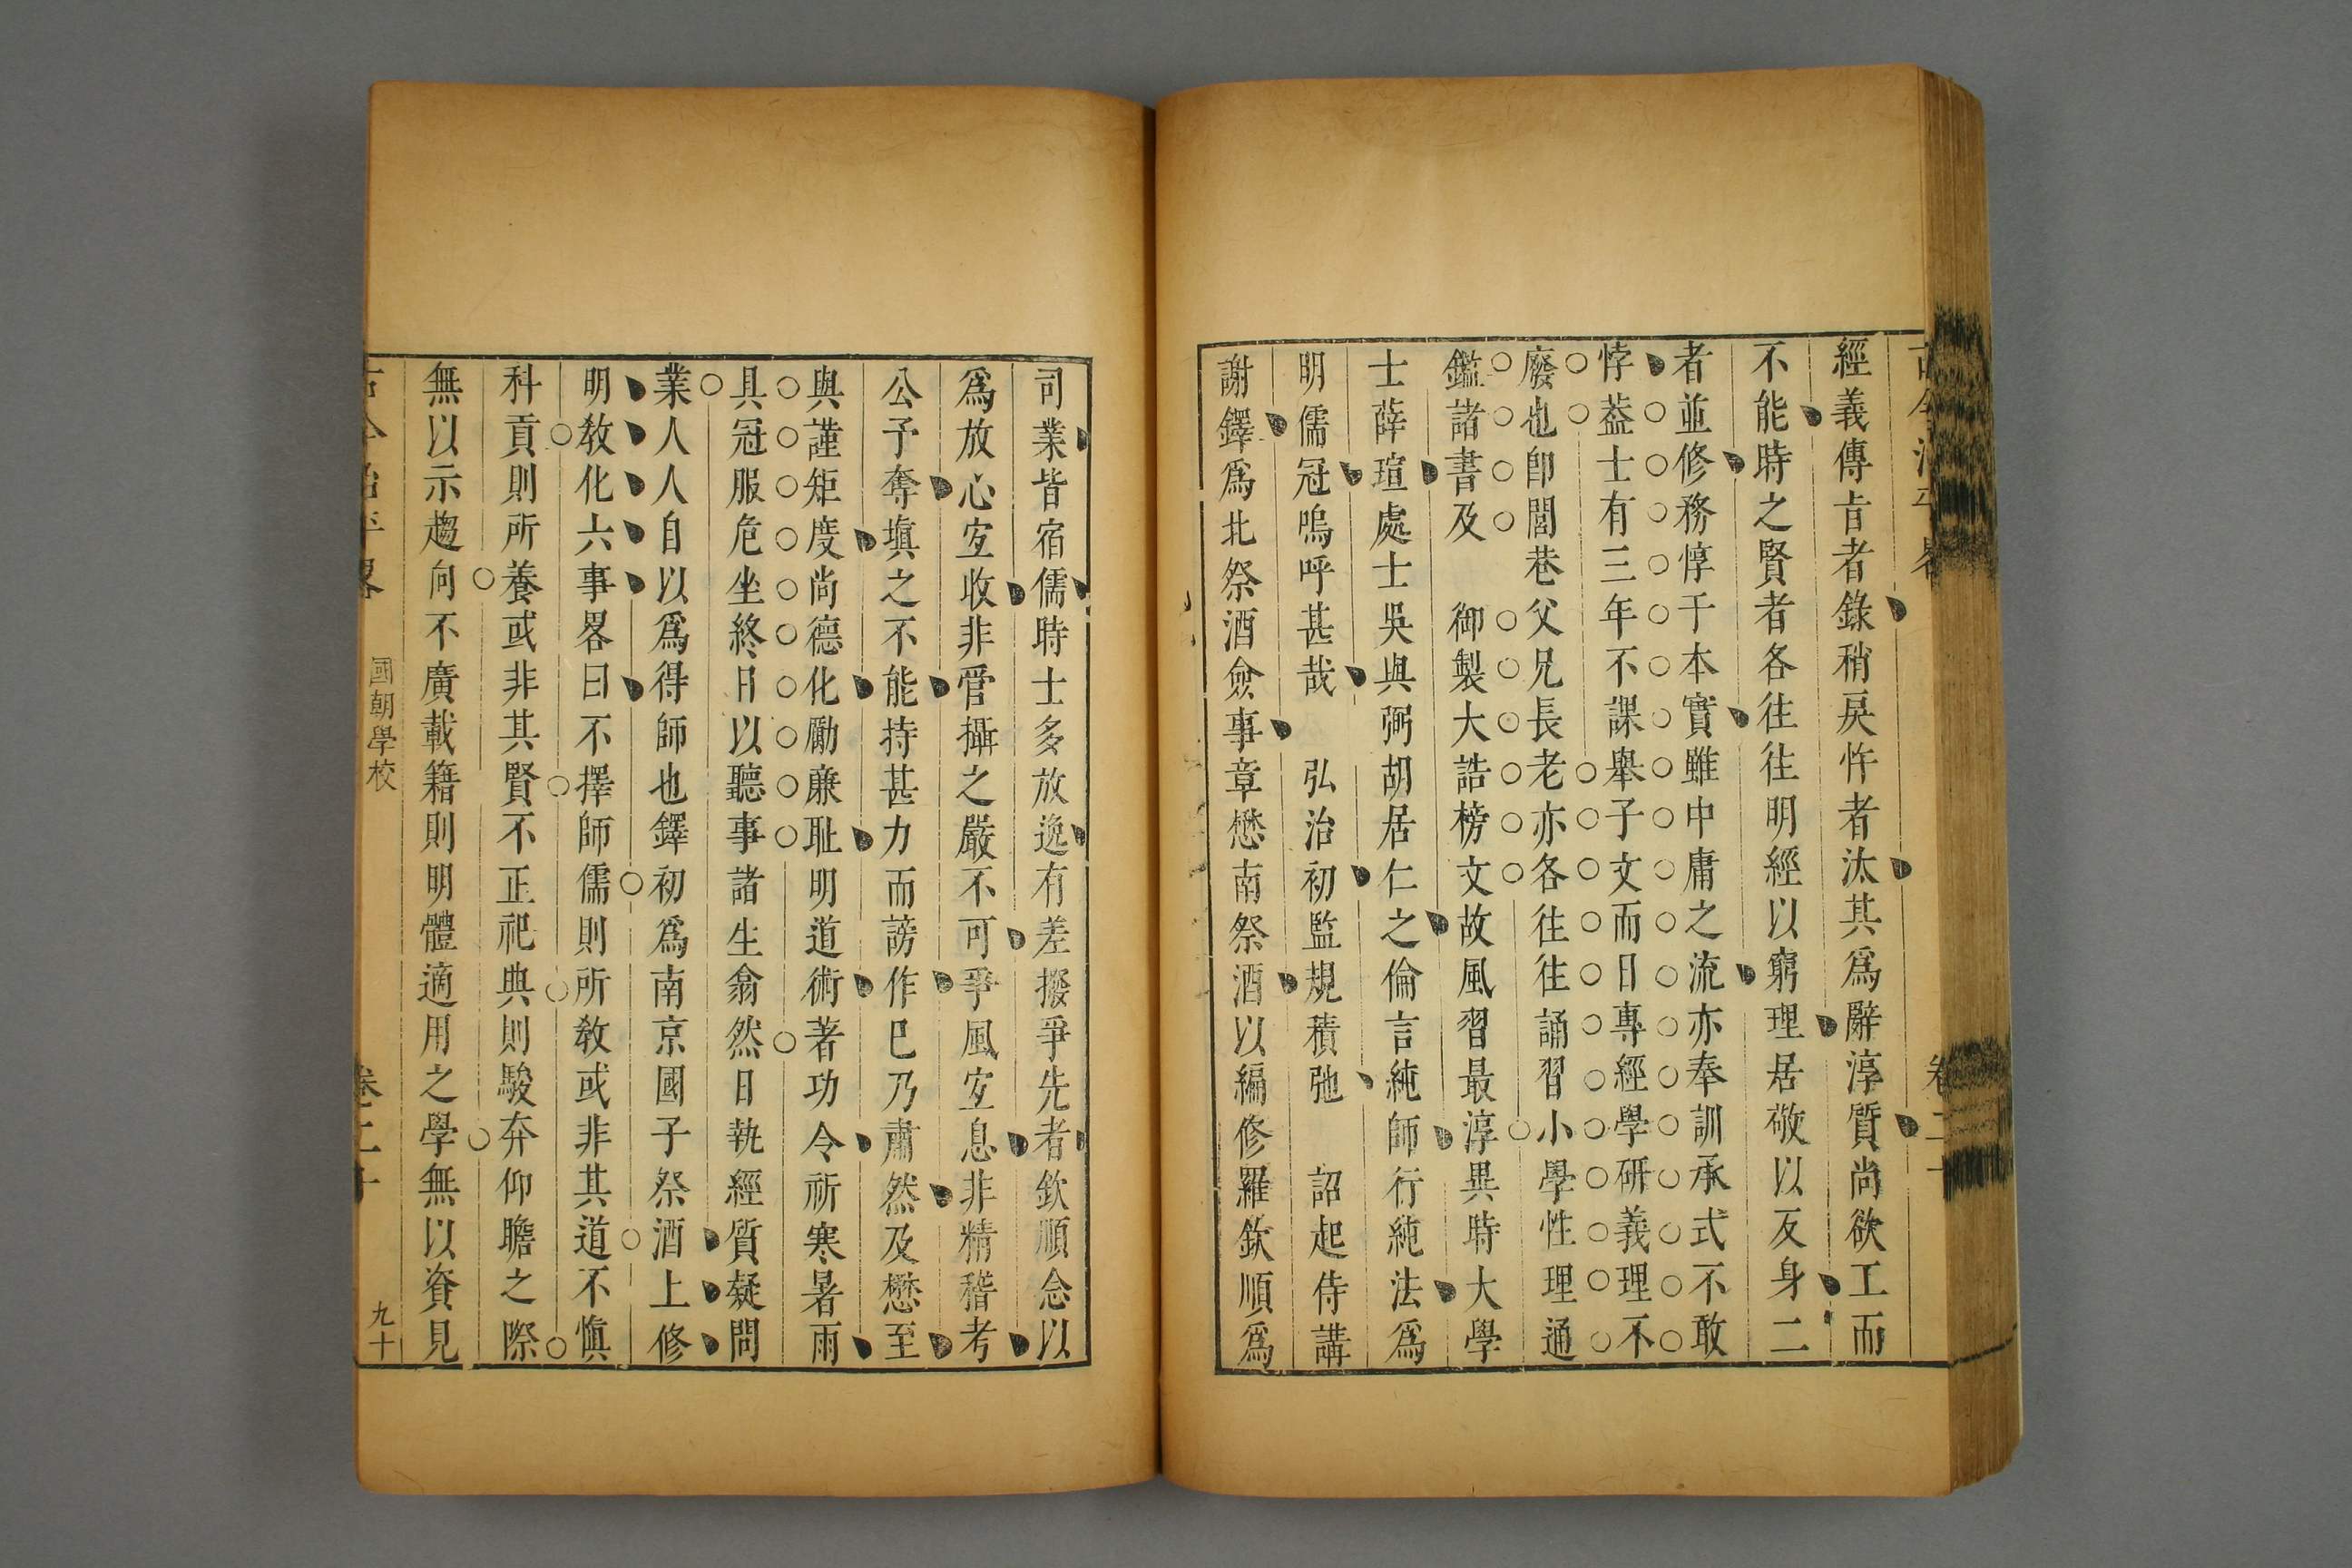 經義傳㫖者錄稍戾忤者汰其爲辭淳質尚欲工而
不能時之賢者各往往明經以窮理居敬以反身二
者並修務惇于本實雖中庸之流亦奉訓承式不敢
悖葢士有三年不課舉子文而日專經學硏義理不
廢也卽閭巷父兄長老亦各往往誦習小學性理通
鑑諸書及　御製大誥榜文故風習最淳異時大學
士薛瑄處士吳與弼胡居仁之倫言純師行純法爲
明儒冠嗚呼甚哉　弘治初監規積弛　詔起侍講
謝鐸爲北祭酒僉事章懋南祭酒以編修羅欽順爲
司業皆宿儒時士多放逸有差撥爭先者欽順念以
爲放心宐收非管攝之嚴不可爭風宐息非精稽考
公予奪塡之不能持甚力而謗作巳乃肅然及懋至
與謹矩度尚德化勵亷耻明道術著功令祈寒暑雨
具冠服危坐終日以聽事諸生翕然日執經質疑問
業人人自以爲得師也鐸初爲南京國子祭酒上修
明敎化六事畧曰不擇師儒則所敎或非其道不愼
科貢則所養或非其賢不正祀典則駿奔仰瞻之際
無以示趨向不廣載籍則明體適用之學無以資見
國朝學校
九十